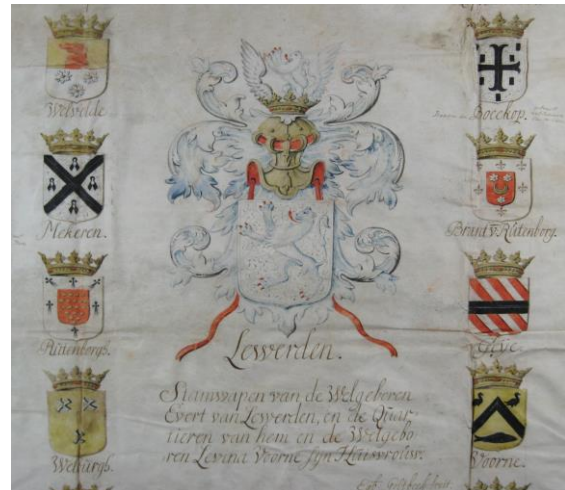 Welvelde
Mekeren.
Ruitenborgh.
Welburgh.
Lewerden.
Stamwapen van de Welgeboren
Evert van Lewerden, en de Quar-
tieren van hem en de Welgebo-
ren Levina Voorne syn Huisvrouw.
Boeckop.
Brant v. Rutenborg.
Voorne.